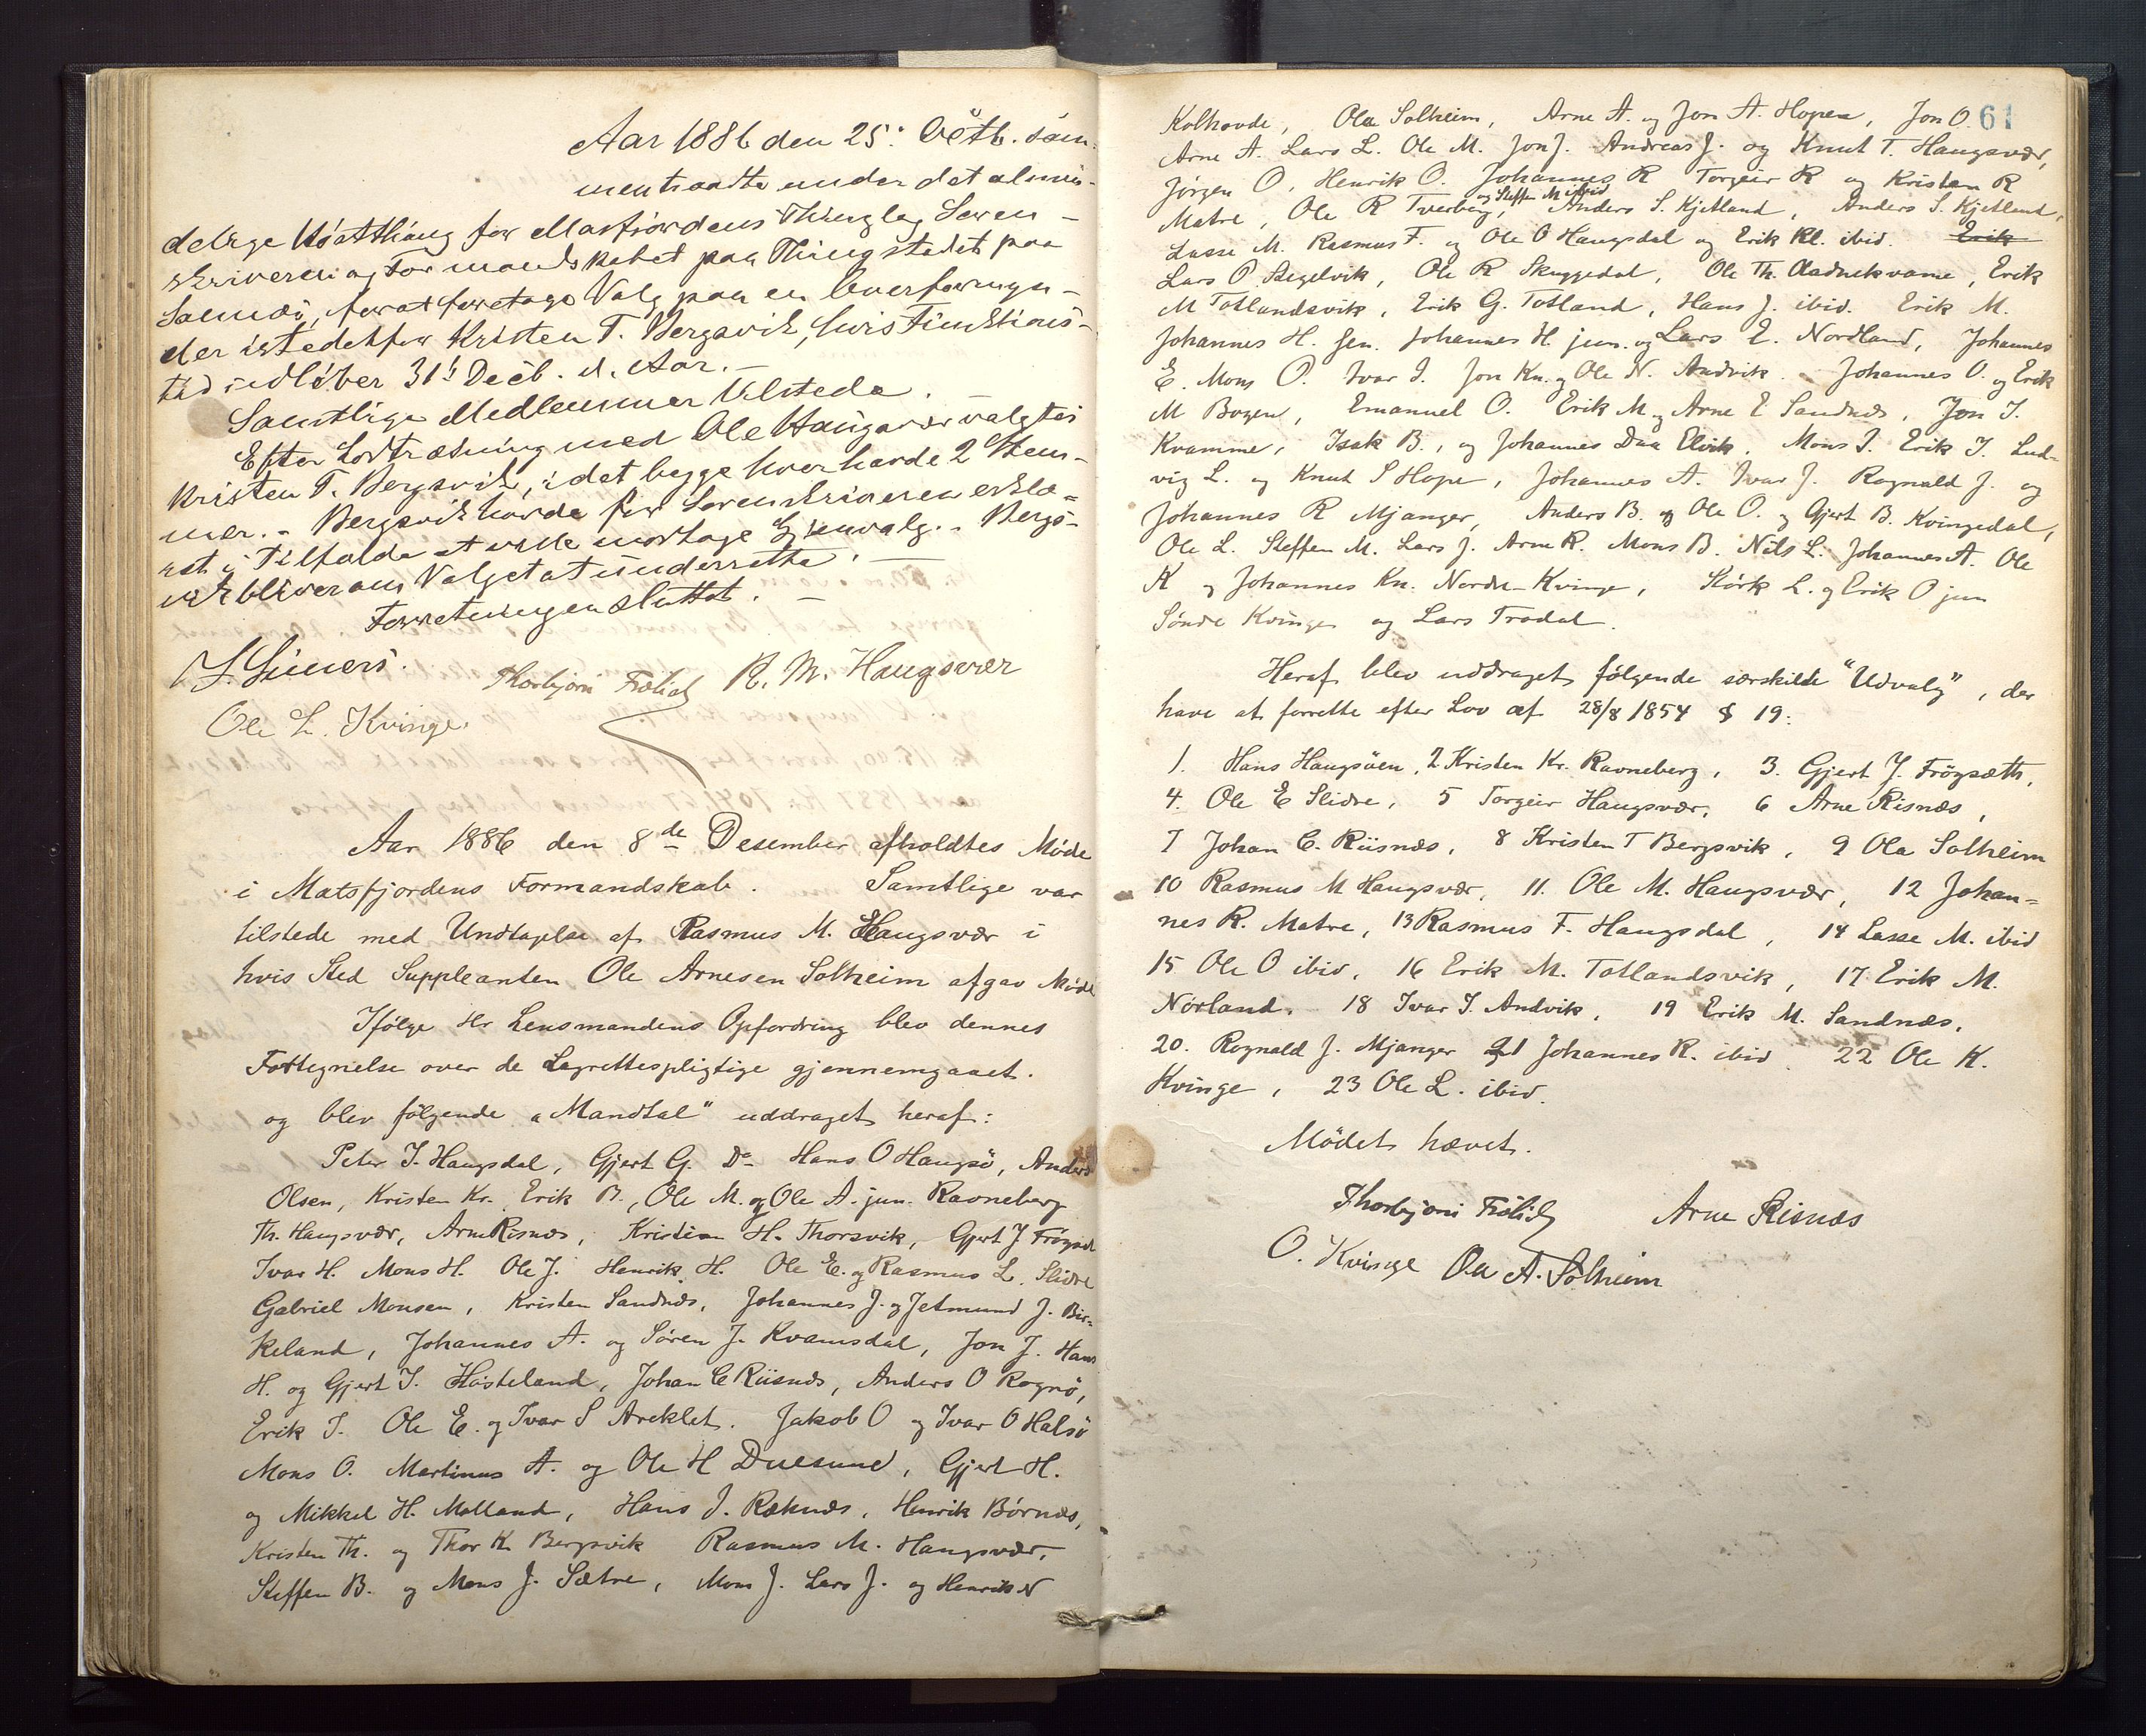 Aar 1886 den 25: Octb. sam-
mentraadte under det almin-
delige Høstthing for Masfjordens Thinglag Soren-
skriveren og Formandskabet paa Thingstedet paa
Solnæs, forat foretage Valg paa en Overformyn-
der istedetfor Kristen T. Bergsvik, hvis Funktions-
tid indløber 31' Decb. d. Aar.-
Samtlige Medlemmer tilstede.
Efter Lodtrækning med Ole Haugsvær valgtes
Kristen T. Bergsvik, idet begge hver havde 2 Stem-
mer. - Bergsvik havde for Sorenskriveren erklæ-
ret i Tilfælde at ville modtage Gjenvalg. - Bergs-
vik bliver om Valget at underrette. -
Forretningen sluttet. -
Thorbjørn Frølid R. M. Haugsvær
Ole L. Kvinge
Aar 1886 den 8de Desember afholdtes Møde
i Matsfjordens Formandskab. Samtlige var
tilstede med Undtagelse af Rasmus M. Haugsvær i
hvis Sted Suppleanten Ole Arnesen Solheim afgav Møde
Ifølge Hr Lensmandens Opfordring blev dennes
Fortegnelse over de Lagrettespligtige gjennemgaaet.
og blev følgende "Mandtal" uddraget heraf:
Peter I. Haugsdal, Gjert G. Do Hans O Haugsö, Anders
Olsen, Kristen Kr. Erik B., Ole M. og Ole A. jun. Ravneberg
Th. Haugsvær, Arne Risnæs, Kristian H. Thorsvik, Gjert J Frögset
Ivar H. Mons H. Ole J. Henrik H. Ole E. og Rasmus L. Slidre
Gabriel Monsen, Kristen Sandnæs, Johannes J. og Jetmund J. Bir-
keland, Johannes A. og Sören J. Kvamsdal, Jon J. Hans
H. og Gjert I. Hosteland, Johan C Riisnæs, Anders O Rognö,
Erik I. Ole E. og Ivar S Areklet. Jakob O og Ivar O Halsö
Mons O. Martinus A. og Ole H Duesund, Gjert H.
og Mikkel H. Molland, Hans I. Røknæs, Henrik Börnæs,
Kristen Th. og Thor K. Bergsvik Rasmus M. Haugsvær,
Steffen B. og Mons J. Sætre, Mons J. Lars J. og Henrik N
61
Kolhovde, Ola Solheim, Arne A. og Jon A. Hopen, Jon O.
Arne A. Lars L. Ole M. Jon J. Andreas J. og Knut T. Haugsvær,
Jörgen O, Henrik O. Johannes R Torgeir R og Kristen R
og Steffen M ibid
Matre, Ole R Tverberg, Anders S. Kjetland, Anders I. Kjetland,
Lasse M. Rasmus F. og Ole O Haugsdal og Erik Kl. ibid. Erik
Lars O. Stegelvik, Ole R Skuggedal, Ole Th. Kvame, Erik
M Totlandsvik, Erik G. Totland, Hans J. ibid. Erik M.
Johannes H. sen. Johannes H. jun. og Lars E. Nordland, Johannes
E. Mons O. Ivar I. Jon Kn. og Ole N. Andvik. Johannes O. og Erik
M Bogen, Emanuel O. Erik M. og Arne E Sandnæs, Jon I.
Kvamme, Isak B., og Johannes Daa Elvik. Mons I. Erik I. Lud-
vig L. og Knut S Hope, Johannes A. Ivar J. Rognald J. og
Johannes R Mjanger, Anders B. og Ole O. og Gjert B. Kvingedal,
Ole L. Steffen M. Lars J. Arne R. Mons B. Nils L. Johannes A. Ole
K og Johannes Kn. Nordre-Kvinge, Störk L. og Erik O jun
Söndre Kvinge og Lars Trodal.
Heraf blev uddraget følgende særskilte "Udvalg", der
have at forrette efter Lov af 28/8 1854 § 19:
1. Hans Haugsöen, 2. Kristen Kr. Ravneberg, 3. Gjert J. Frögsæth,
4. Ole E Slidre, 5 Torgeir Haugsvær, 6 Arne Risnæs,
7 Johan C. Riisnæs, 8 Kristen T Bergsvik, 9 Ola Solheim
10 Rasmus M Haugsvær, 11. Ole M. Haugsvær, 12 Johan-
nes R. Matre, 13 Rasmus F. Haugsdal, 14 Lasse M. ibid
15 Ole O ibid, 16 Erik M. Totlandsvik, 17 Erik M.
Nörland, 18 Ivar I. Andvik, 19 Erik M. Sandnæs,
20. Rognald J. Mjanger 21 Johannes R. ibid. 22 Ole K.
Kvinge, 23 Ole L. ibid.
Mödet hævet.
Thorbjörn Frölid Arne Risnæs
O. Kvinge Ola A. Solheim